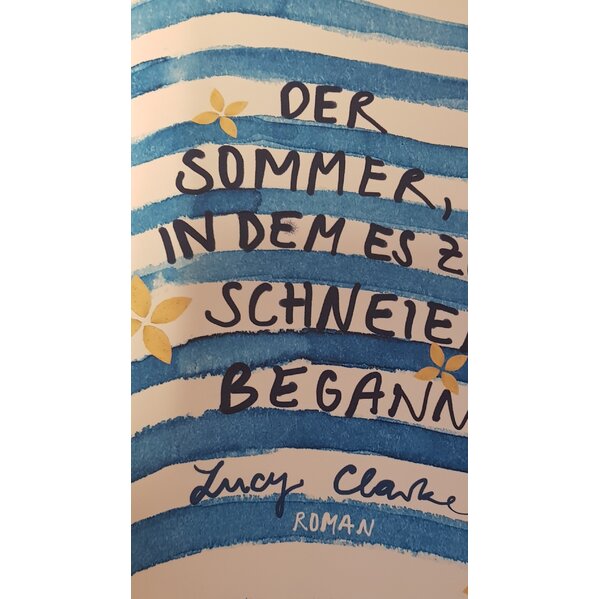 DER
SOMMER,
IN DEM ES
SCHNEIE
BEGANN
Lucy Clarke
ROMAN